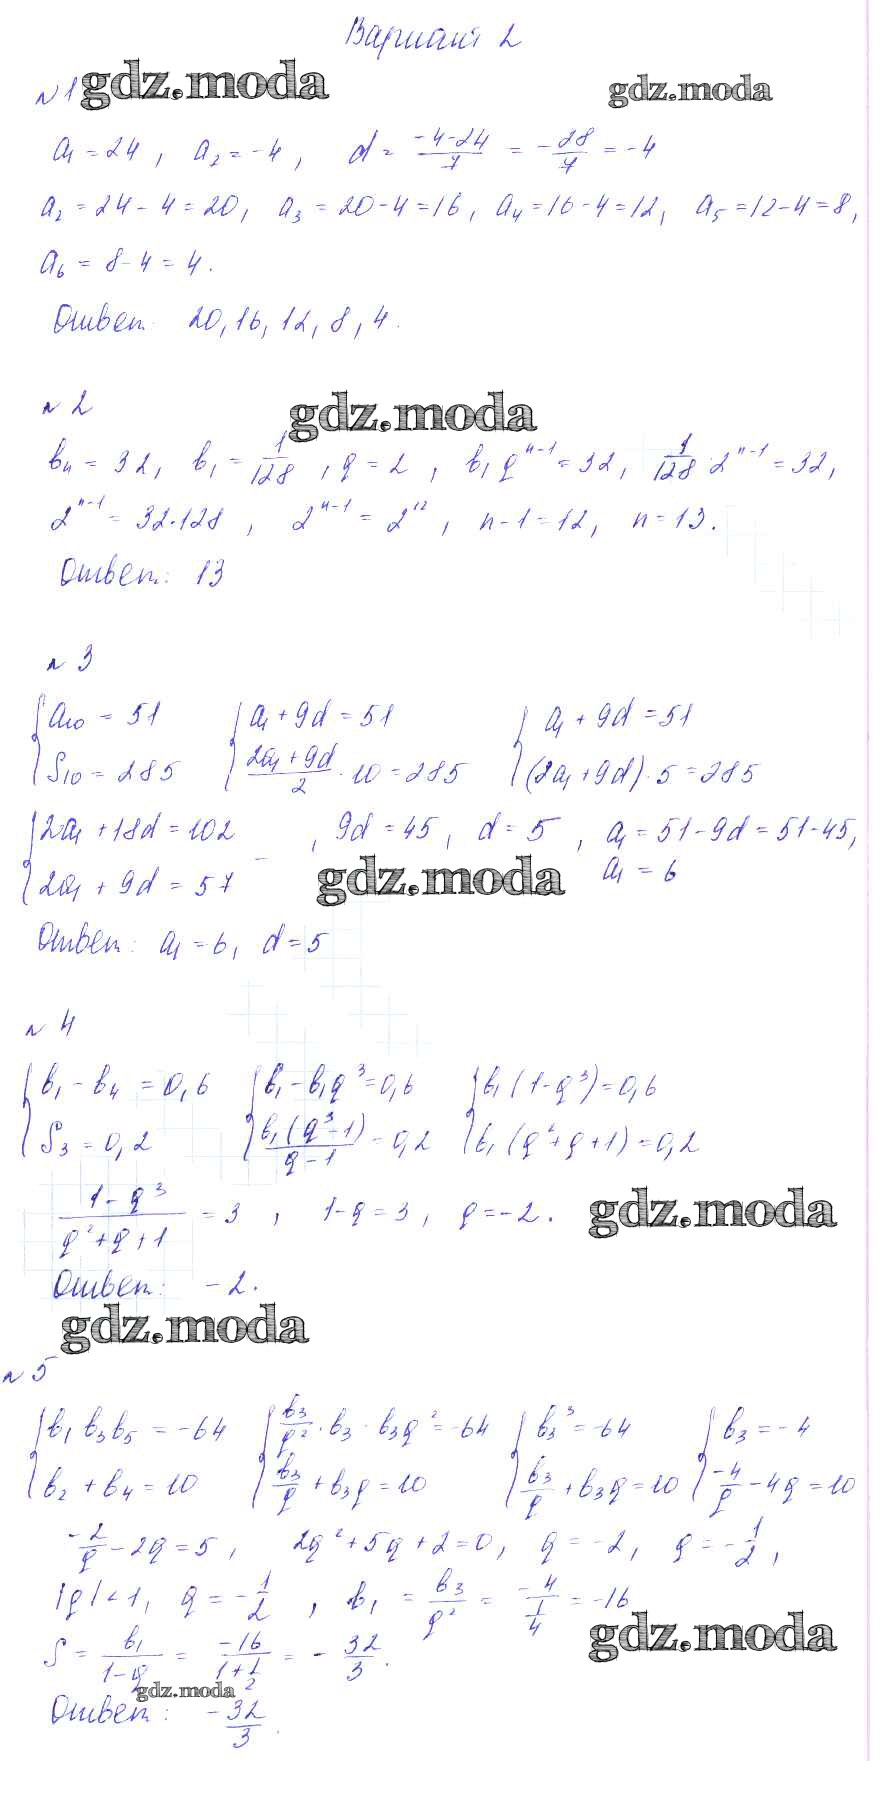 Вариант 2
№1 gdz.moda gdz.moda
a₁ = 24, a₂ = -4, d = (-4-24)/7 = -28/7 = -4
a₂ = 24 - 4 = 20, a₃ = 20 - 4 = 16, a₄ = 16 - 4 = 12, a₅ = 12 - 4 = 8,
a₆ = 8 - 4 = 4.
Ответ: 20, 16, 12, 8, 4.
№ 2 gdz.moda
bₙ = 32, b₁ = 1/128, q = 2, b₁qⁿ⁻¹ = 32, 1/128 · 2ⁿ⁻¹ = 32,
2ⁿ⁻¹ = 32·128, 2ⁿ⁻¹ = 2¹², n - 1 = 12, n = 13.
Ответ: 13
№ 3
{a₁₀ = 51 {a₁ + 9d = 51 {a₁ + 9d = 51
S₁₀ = 285 (2a₁ + 9d)/2 · 10 = 285 (2a₁ + 9d)·5 = 285
{2a₁ + 18d = 102 -, 9d = 45, d = 5, a₁ = 51 - 9d = 51 - 45,
2a₁ + 9d = 57 gdz.moda a₁ = 6
Ответ: a₁ = 6, d = 5
№ 4
{b₁ - b₄ = 0,6 {b₁ - b₁q³ = 0,6 {b₁(1 - q³) = 0,6
S₃ = 0,2 b₁(q³ - 1)/(q - 1) = 0,2 b₁(q² + q + 1) = 0,2
(1 - q³)/(q² + q + 1) = 3, 1 - q = 3, q = -2. gdz.moda
Ответ: -2.
gdz.moda
№ 5
{b₁b₃b₅ = -64 {b₃/q² · b₃ · b₃q² = -64 {b₃³ = -64 {b₃ = -4
b₂ + b₄ = 10 b₃/q + b₃q = 10 b₃/q + b₃q = 10 -4/q - 4q = 10
-2/q - 2q = 5, 2q² + 5q + 2 = 0, q = -2, q = -1/2,
|q| < 1, q = -1/2, b₁ = b₃/q² = -4/(1/4) = -16
gdz.moda
S = b₁/(1 - q) = -16/(1 + 1/2) = -32/3.
gdz.moda
Ответ: -32/3.